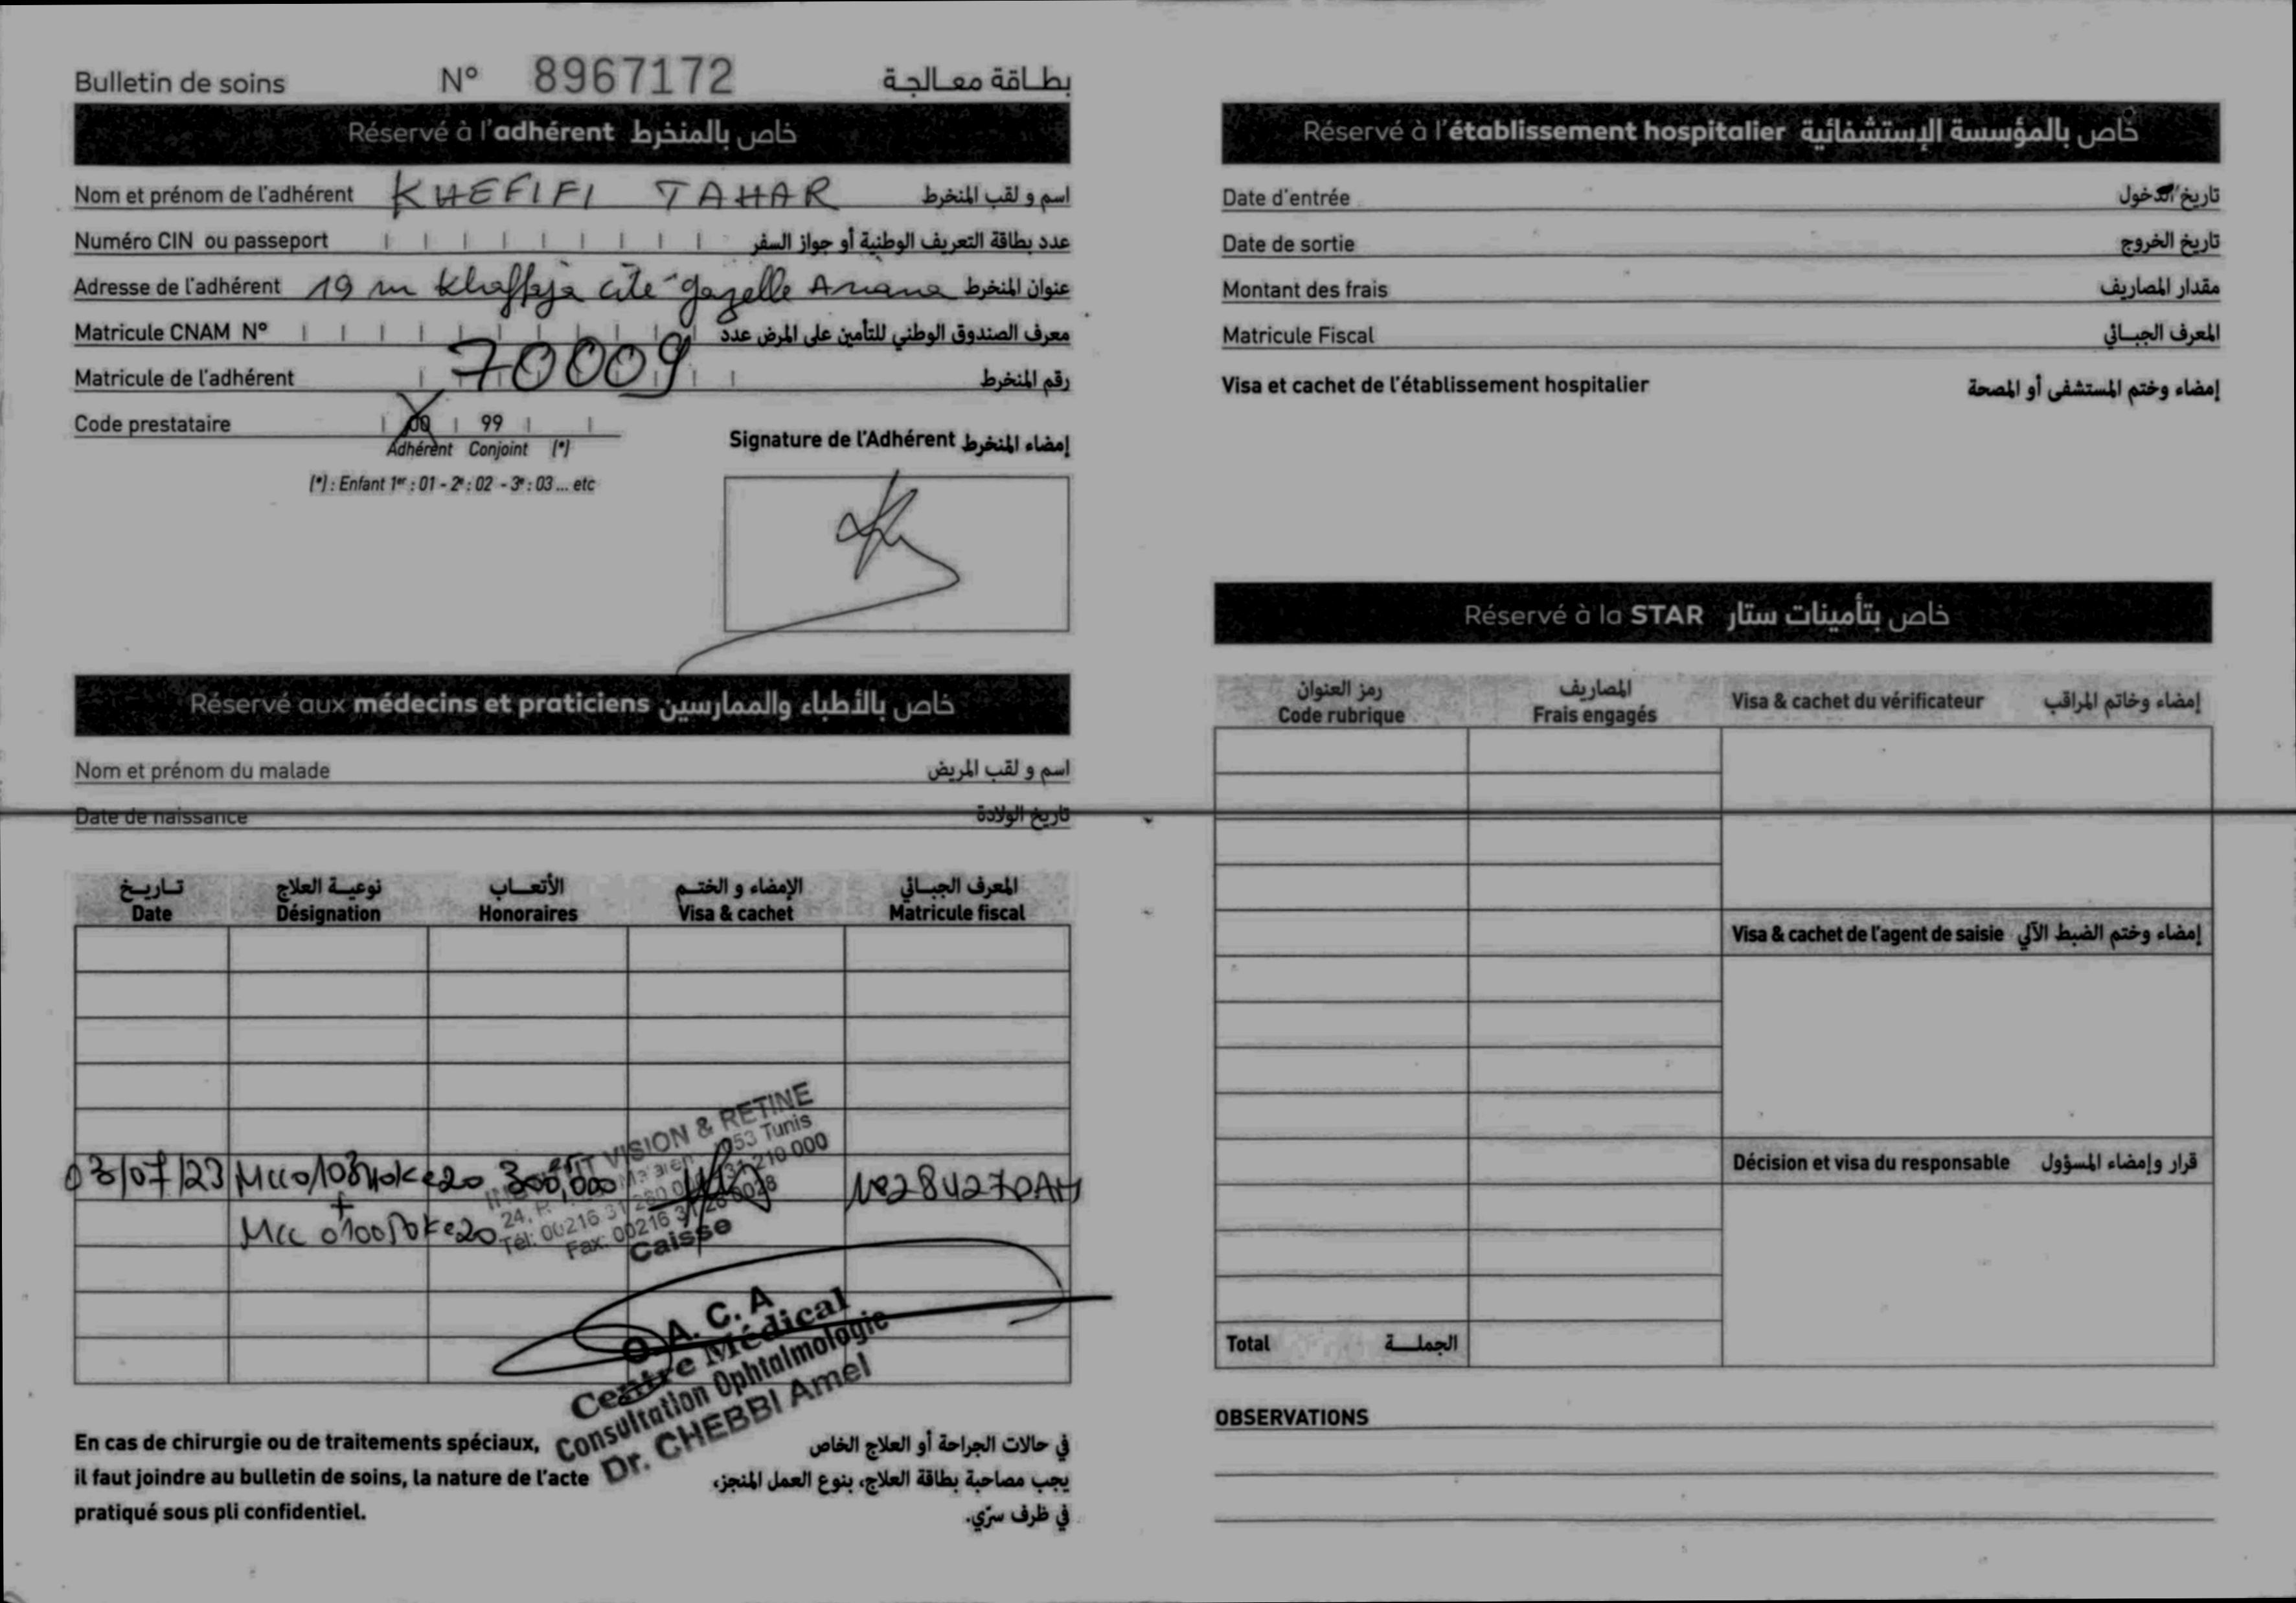 Bulletin de soins N° 8967172 بطاقة معالجة
Réservé à l'adhérent خاص بالمنخرط
Nom et prénom de l'adhérent KHEFIFI TAHAR اسم و لقب المنخرط
Numéro CIN ou passeport عدد بطاقة التعريف الوطنية أو جواز السفر
Adresse de l'adhérent 19 Khaffaja cité gazelle Ariana عنوان المنخرط
Matricule CNAM N° معرف الصندوق الوطني للتأمين على المرض عدد
Matricule de l'adhérent 70009 رقم المنخرط
Code prestataire 00 99
Adhérent Conjoint (*)
(*) : Enfant 1er : 01 - 2e : 02 - 3e : 03 ... etc
Signature de l'Adhérent إمضاء المنخرط
Réservé aux médecins et praticiens خاص بالأطباء والممارسين
Nom et prénom du malade اسم و لقب المريض
Date de naissance تاريخ الولادة
تاريخ نوعية العلاج الأتعاب الإمضاء و الختم المعرف الجبائي
Date Désignation Honoraires Visa & cachet Matricule fiscal
VISION & RETINE
1053 Tunis
03/07/23 300,000
+
24, R
Tél: 00216 31 210 000
Fax: 00216 31
Caisse
O. A. C. A
Centre Médical
Consultation Ophtalmologie
Dr. CHEBBI Amel
En cas de chirurgie ou de traitements spéciaux,
il faut joindre au bulletin de soins, la nature de l'acte
pratiqué sous pli confidentiel.
في حالات الجراحة أو العلاج الخاص
يجب مصاحبة بطاقة العلاج، بنوع العمل المنجز،
في ظرف سرّي.
Réservé à l'établissement hospitalier خاص بالمؤسسة الإستشفائية
Date d'entrée تاريخ الدخول
Date de sortie تاريخ الخروج
Montant des frais مقدار المصاريف
Matricule Fiscal المعرف الجبائي
Visa et cachet de l'établissement hospitalier إمضاء وختم المستشفى أو المصحة
Réservé à la STAR خاص بتأمينات ستار
رمز العنوان المصاريف
Code rubrique Frais engagés Visa & cachet du vérificateur إمضاء وخاتم المراقب
Visa & cachet de l'agent de saisie إمضاء وختم الضبط الآلي
Décision et visa du responsable قرار وإمضاء المسؤول
Total الجملة
OBSERVATIONS